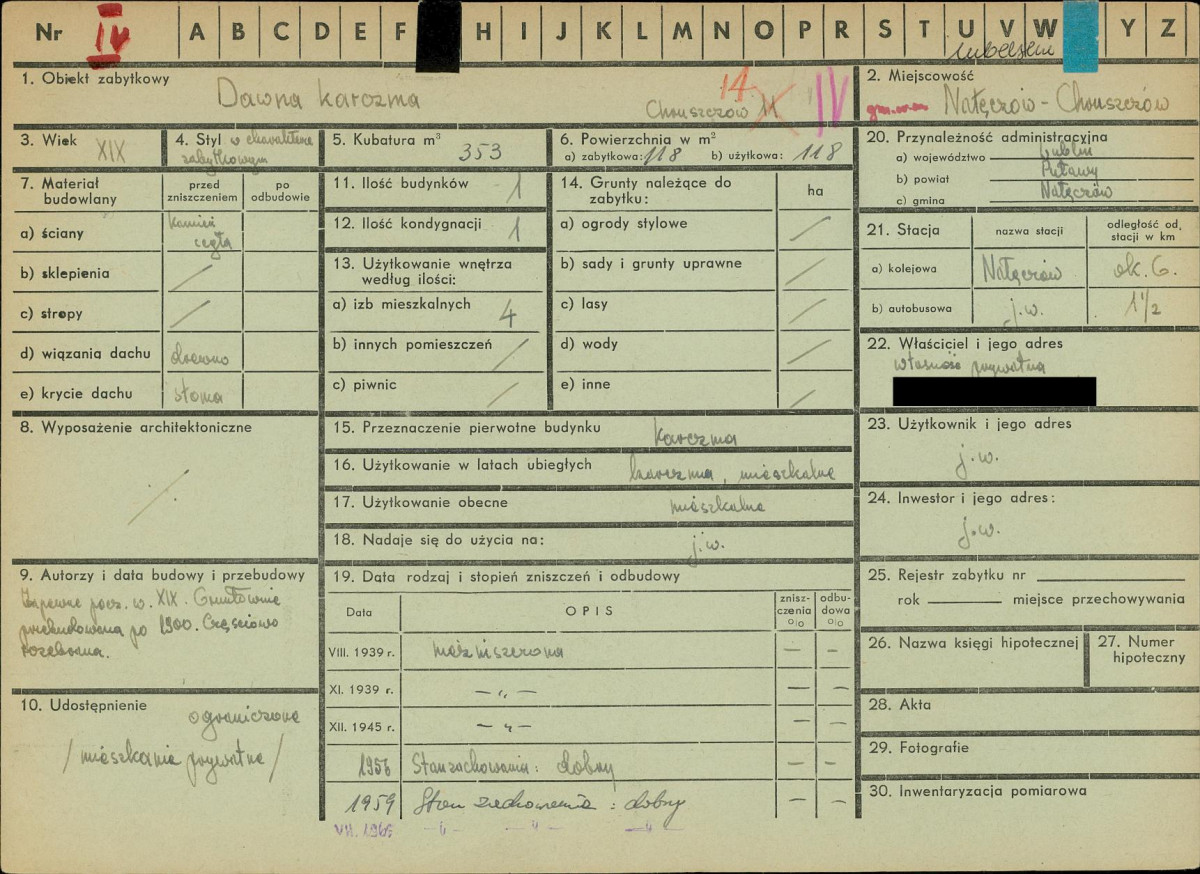 Nr IV A B C D E F H I J K L M N O P R S T U V W Y Z
lubelskie
1. Obiekt zabytkowy
Dawna karczma
14
Chruszczów 11
IV
2. Miejscowość
Nałęczów - Chruszczów
3. Wiek XIX
4. Styl o charakterze
zabytkowym
5. Kubatura m³ 353
6. Powierzchnia w m²
a) zabytkowa: 118 b) użytkowa: 118
20. Przynależność administracyjna
a) województwo Lublin
b) powiat Puławy
c) gmina Nałęczów
7. Materiał budowlany
przed zniszczeniem
po odbudowie
a) ściany Kamień
cegła
b) sklepienia /
c) stropy /
d) wiązania dachu drewno
e) krycie dachu słoma
11. Ilość budynków 1
12. Ilość kondygnacji 1
13. Użytkowanie wnętrza
według ilości:
a) izb mieszkalnych 4
b) innych pomieszczeń /
c) piwnic /
14. Grunty należące do
zabytku:
ha
a) ogrody stylowe /
b) sady i grunty uprawne /
c) lasy /
d) wody /
e) inne /
21. Stacja
nazwa stacji
odległość od stacji w km
a) kolejowa Nałęczów ok. 6.
b) autobusowa j.w. 1 1/2
22. Właściciel i jego adres
własność prywatna
8. Wyposażenie architektoniczne
15. Przeznaczenie pierwotne budynku karczma
16. Użytkowanie w latach ubiegłych karczma, mieszkalne
17. Użytkowanie obecne mieszkalne
18. Nadaje się do użycia na: j.w.
23. Użytkownik i jego adres
j.w.
24. Inwestor i jego adres:
j.w.
9. Autorzy i data budowy i przebudowy
Zapewne pocz. w. XIX. Gruntownie
przebudowana po 1900. Częściowo
rozebrana.
10. Udostępnienie
ograniczone
/mieszkania prywatne/
19. Data rodzaj i stopień zniszczeń i odbudowy
Data OPIS zniszczenia o|o odbudowa o|o
VIII. 1939 r. niezniszczona — —
XI. 1939 r. — „ — — —
XII. 1945 r. — „ — — —
1956 Stan zachowania: dobry — —
1959 Stan zachowania: dobry — —
VII. 196 —„— —„— —„—
25. Rejestr zabytku nr
rok miejsce przechowywania
26. Nazwa księgi hipotecznej
27. Numer
hipoteczny
28. Akta
29. Fotografie
30. Inwentaryzacja pomiarowa